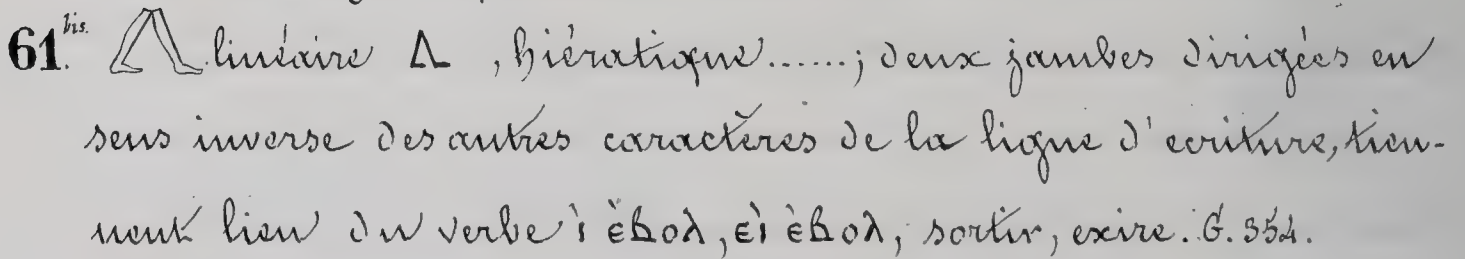 61.bis. 𓂽 linéaire 𓂽 , hiératique......; deux jambes dirigées en
sens inverse des autres caractères de la ligne d'ecriture, tien-
nent lieu du verbe ⲓ̀ ⲉ̀ⲃⲟⲗ, ⲉⲓ̀ ⲉ̀ⲃⲟⲗ, sortir, exire. G. 354.